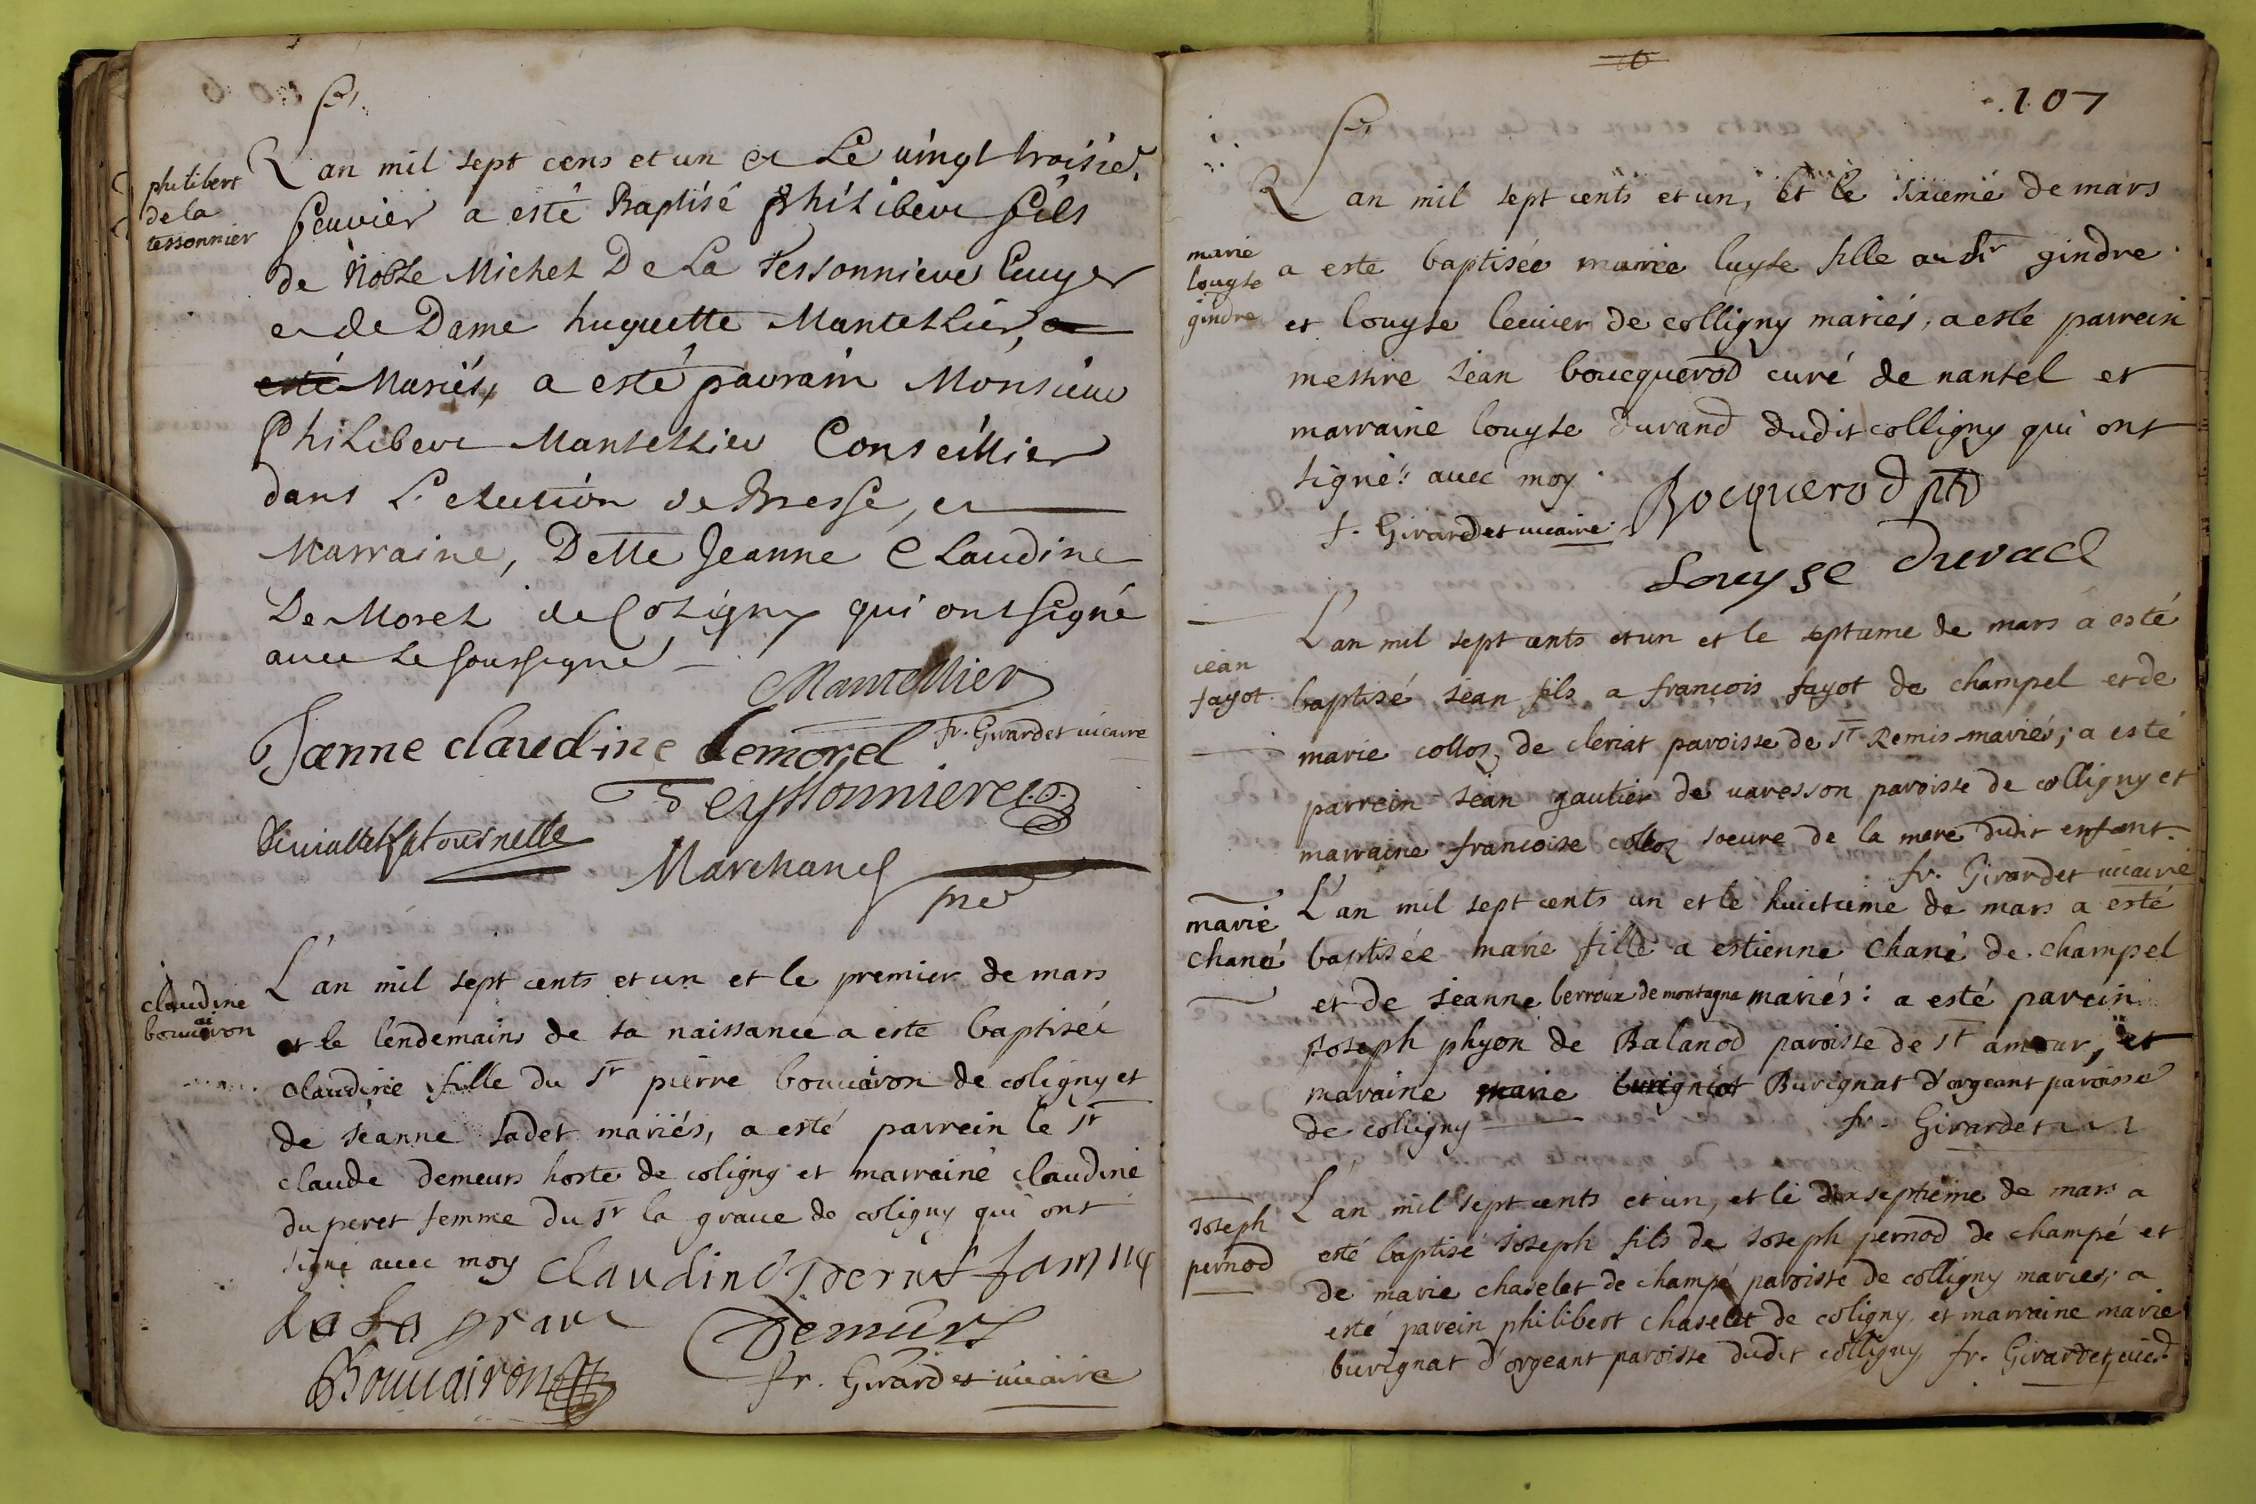 philibert
de la
tessonnier
L an mil sept cens et un et Le uingt troisie.
feuvier a esté Baptisé philibert fils
de Noble Michel De La Tessonniere Ecuyer
et de Dame huguette Mantellier, et
esté Mariés, a esté parrain Monsieur
Philibert Mantellier Conseillier
dans L'election de Bresse, et
Marraine, Delle Jeanne Claudine
De Morel de Coligny qui ont signé
auec Le soussigné
Mantellier
Jeanne claudine demorel fr. Girardet uicaire
Teyssonniere
Latournelle
Marchand
pre
claudine
bouuairon
L'an mil sept cents et un et le premier de mars
et le lendemains de sa naissance a este baptiseé
claudine fille du Sr pierre bouuairon de coligny et
de jeanne sadet mariés, a esté parrein le Sr
claude demeurs hoste de coligny et marraine claudine
du peret femme du Sr la graue de coligny qui ont
signé auec moy Claudine perret famme
de la grave Demurs
Bouuairon
fr. Girardet uicaire
107
marie
louyse
gindre
L an mil sept cents et un, et le sixieme de mars
a este baptisée marie luyse fille au Sr gindre
et louyse lecuier de colligny mariés, a esté parrein
messire jean boucquerod curé de nantel et
marraine louyse durand dudit colligny qui ont
signé auec moy. Bocquerod ptr
f. Girardet uicaire
Louyse durad
jean
fayot
L'an mil sept cents et un et le septieme de mars a esté
baptisé jean fils a françois fayot de champel et de
marie colloz de cleriat paroisse de St Remis mariés; a esté
parrein jean gautier de uaresson paroisse de colligny et
marraine francoise colloz soeure de la mere dudit enfant.
fr. Girardet uicaire
marie
chané
L'an mil sept cents un et le huictieme de mars a esté
baptisée marie fille a estienne Chané de champel
et de jeanne berroux de montagna mariés: a esté parein
joseph phyon de Balanod paroisse de St amour, et
maraine marie burigniot Buvignat d'orgeant paroisse
de coligny fr. Girardet
joseph
pernod
L'an mil sept cents et un, et le dixseptieme de mars a
esté baptisé joseph fils de joseph pernod de champé et
de marie chaselet de champé paroisse de colligny mariés, a
esté parein philibert chaselet de coligny et marraine marie
buvignat d'orgeant paroisse dudit colligny fr. Girardet uic.